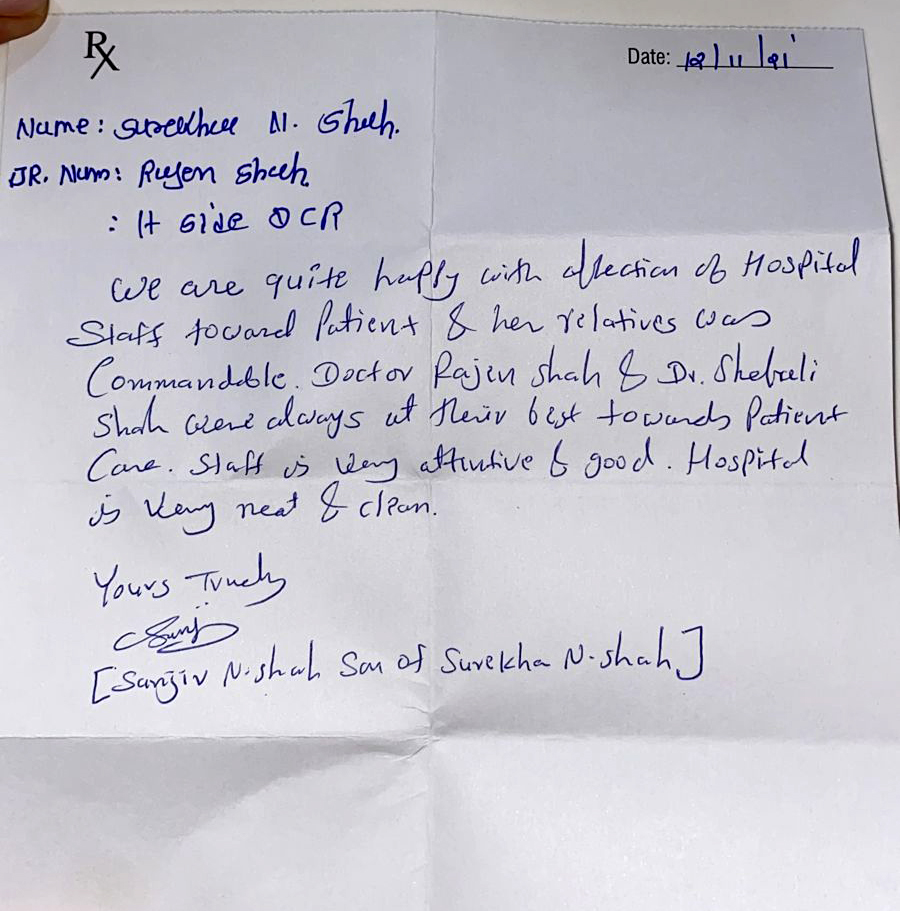 Rx
Date: 12/11/21
Name: Surekhaa N. Shah.
DR. Nam: Rajen Shah
: lt side OCR
We are quite happy with affection of Hospital
Staff toward Patient & her relatives was
Commandable. Doctor Rajen shah & Dr. Shefali
Shah were always at their best towards Patient
Care. Staff is very attintive & good. Hospital
is very neat & clean.
Yours Truely
[Sanjiv N. shah Son of Surekha N. shah]